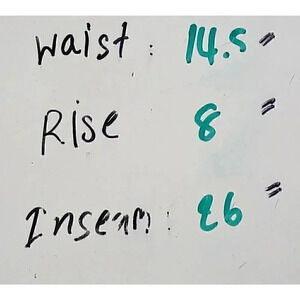 Waist : 14.5"
Rise 8"
Inseam : 26"